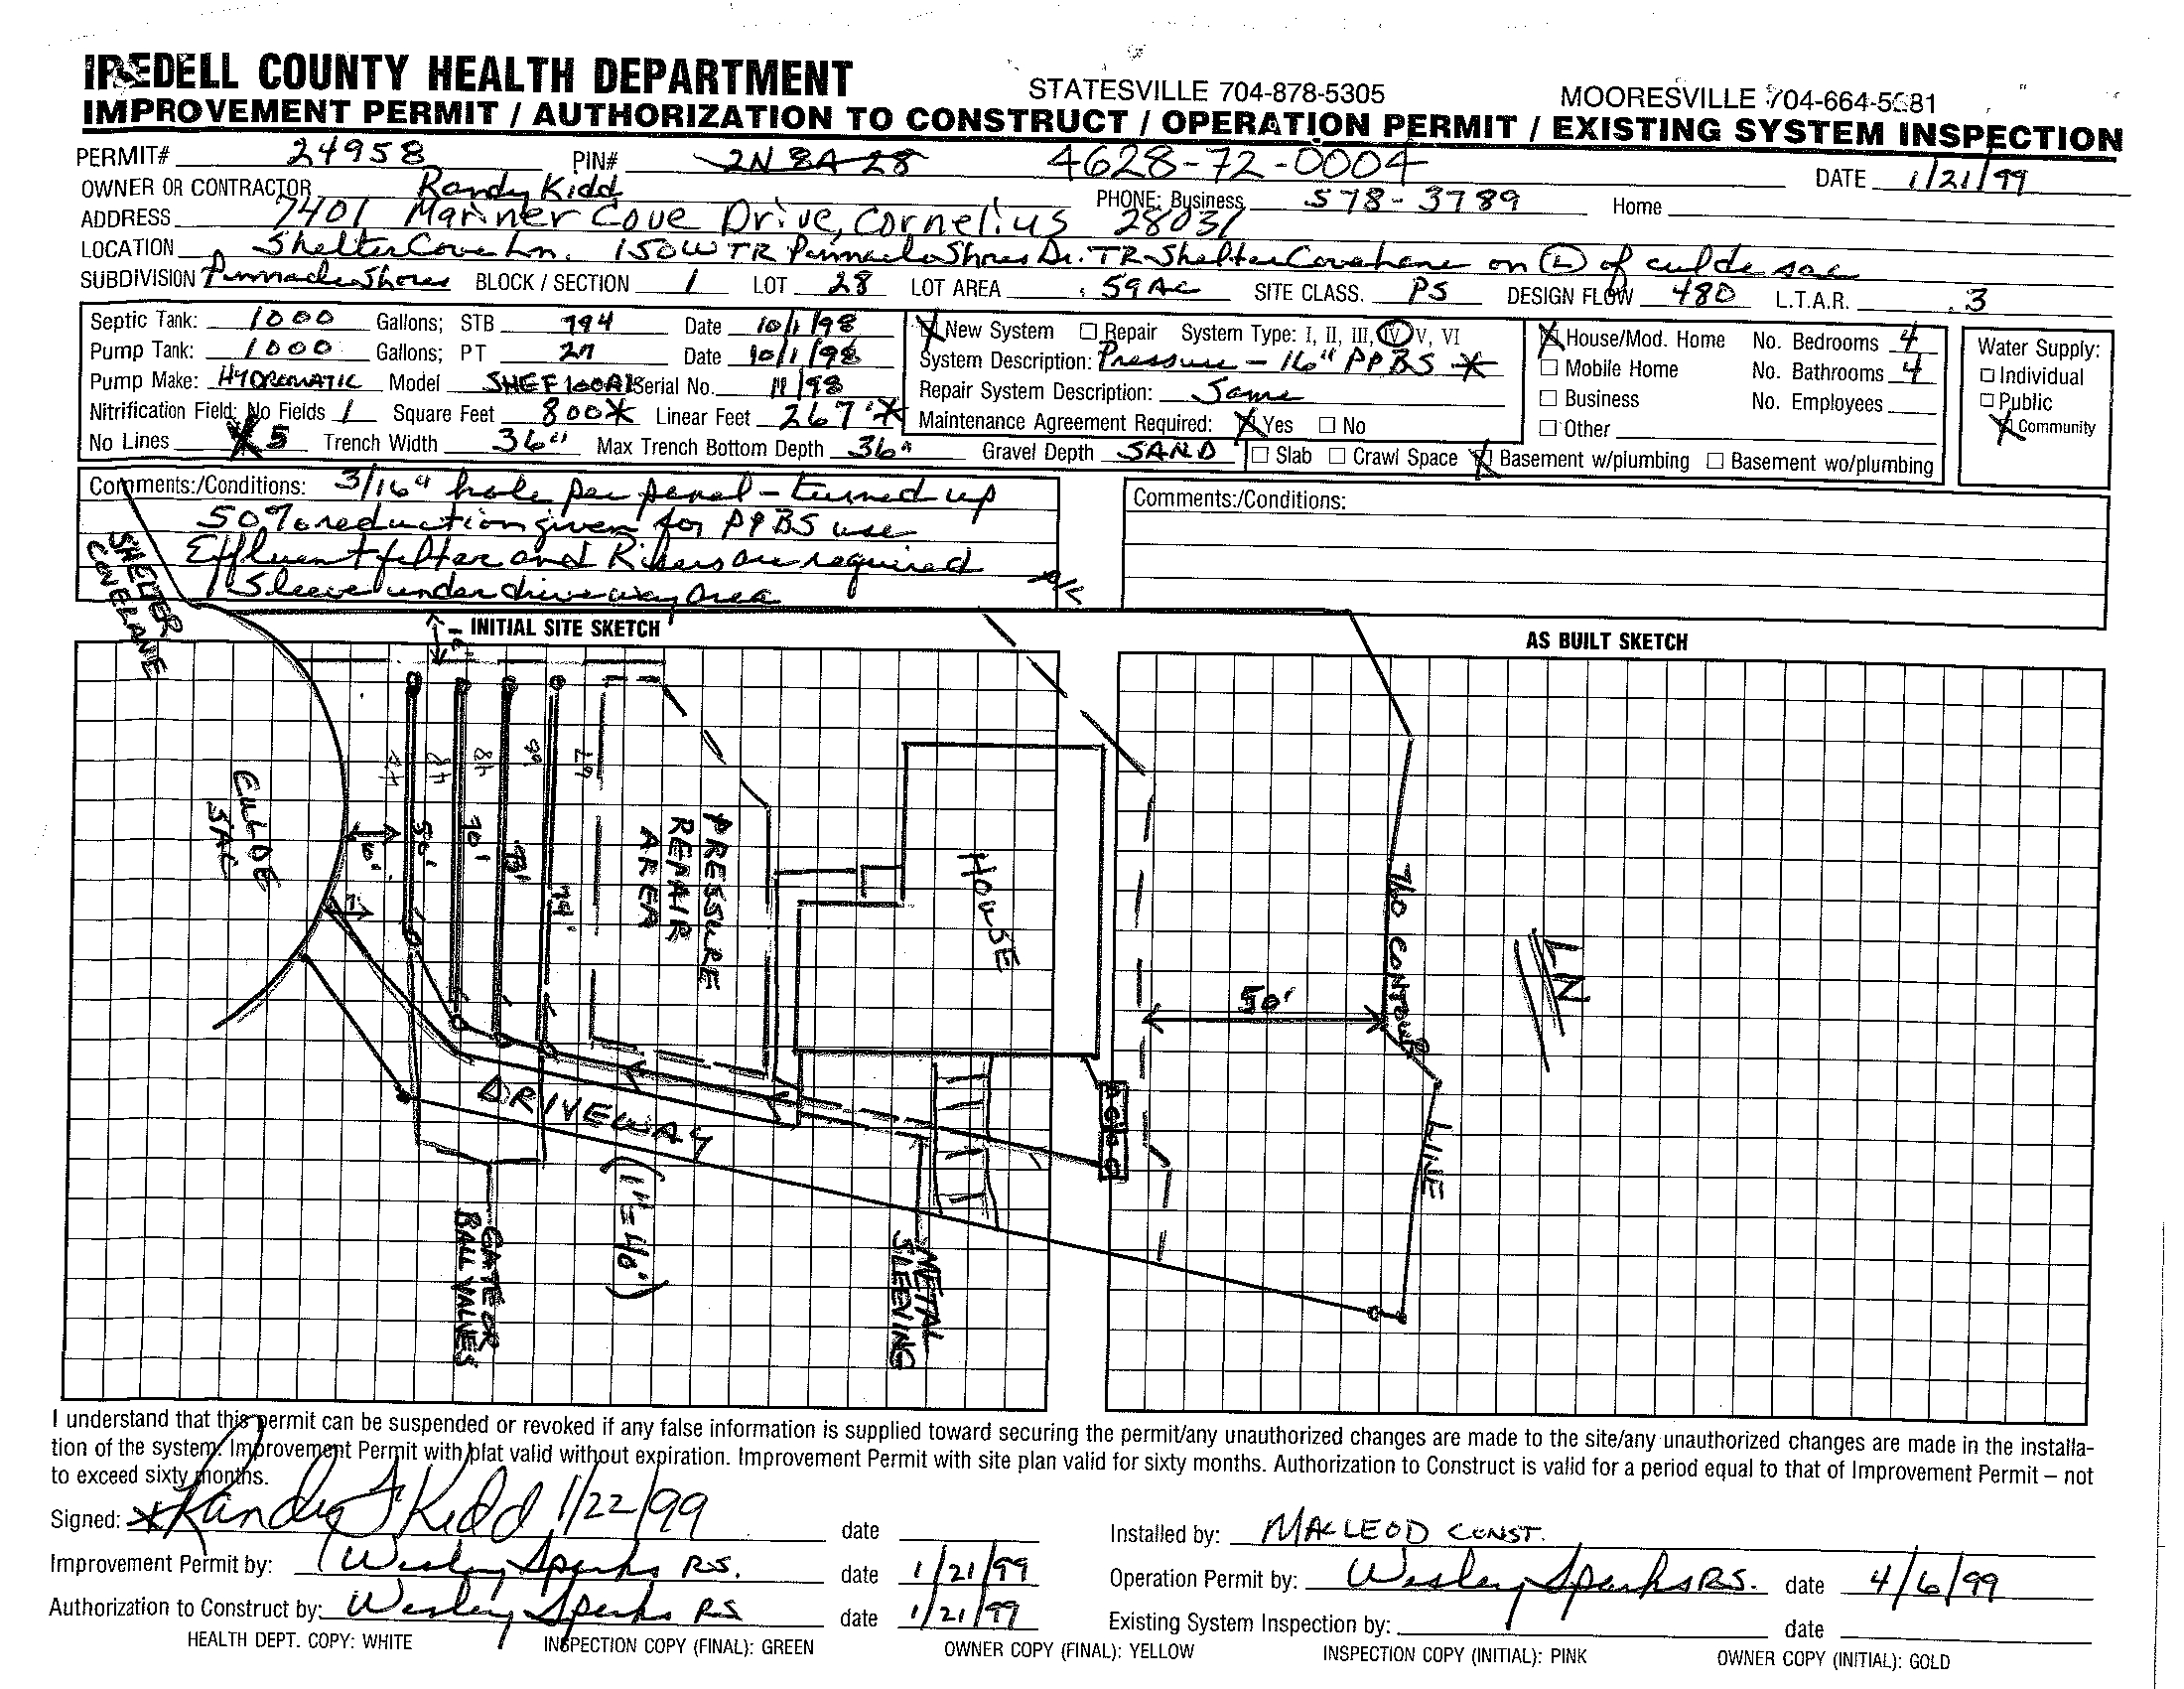 IREDELL COUNTY HEALTH DEPARTMENT STATESVILLE 704-878-5305 MOORESVILLE 704-664-5281
IMPROVEMENT PERMIT / AUTHORIZATION TO CONSTRUCT / OPERATION PERMIT / EXISTING SYSTEM INSPECTION
PERMIT# 24958 PIN# 2N 8A 28 4628-72-0004 DATE 1/21/99
OWNER OR CONTRACTOR Randy Kidd PHONE: Business 578-3789 Home
ADDRESS 7401 Mariner Cove Drive, Cornelius 28031
LOCATION Shelter Cove Ln. 150W TR Pinnacle Shores Dr. TR Shelter Cove Lane on (L) of culdesac
SUBDIVISION Pinnacle Shores BLOCK / SECTION 1 LOT 28 LOT AREA .59Ac SITE CLASS. PS DESIGN FLOW 480 L.T.A.R. .3
Septic Tank: 1000 Gallons; STB 794 Date 10/1/98
Pump Tank: 1000 Gallons; PT 27 Date 10/1/98
Pump Make: HYDROMATIC Model SHEF100A1 Serial No. 11/98
Nitrification Field: No Fields 1 Square Feet 800* Linear Feet 267'*
No Lines 5 Trench Width 36" Max Trench Bottom Depth 36" Gravel Depth SAND
X New System ☐ Repair System Type: I, II, III, IV V, VI
System Description: Pressure - 16" PPBS *
Repair System Description: Same
Maintenance Agreement Required: X Yes ☐ No
☐ Slab ☐ Crawl Space X Basement w/plumbing ☐ Basement wo/plumbing
X House/Mod. Home No. Bedrooms 4
☐ Mobile Home No. Bathrooms 4
☐ Business No. Employees
☐ Other
Water Supply:
☐ Individual
☐ Public
X Community
Comments:/Conditions: 3/16" hole per panel - turned up
50% reduction given for PPBS use
Effluent filter and Risers are required
Sleeve under driveway area
Comments:/Conditions:
SHELTER
COVE LANE
INITIAL SITE SKETCH
AS BUILT SKETCH
CUL DE
SAC
48
48
66
67
50'
70'
73'
74'
10'
PRESSURE
REPAIR
AREA
HOUSE
760 CONTOUR LINE
50'
N
DRIVEWAY
(1"=40')
GATE OR
BALL VALVES
METAL
SLEEVING
I understand that this permit can be suspended or revoked if any false information is supplied toward securing the permit/any unauthorized changes are made to the site/any unauthorized changes are made in the installa-
tion of the system. Improvement Permit with plat valid without expiration. Improvement Permit with site plan valid for sixty months. Authorization to Construct is valid for a period equal to that of Improvement Permit – not
to exceed sixty months.
Signed: Randy Kidd 1/22/99 date
Installed by: MACLEOD CONST.
Improvement Permit by: Wesley Sparks R.S. date 1/21/99
Operation Permit by: Wesley Sparks R.S. date 4/6/99
Authorization to Construct by: Wesley Sparks RS date 1/21/99
Existing System Inspection by: date
HEALTH DEPT. COPY: WHITE INSPECTION COPY (FINAL): GREEN OWNER COPY (FINAL): YELLOW INSPECTION COPY (INITIAL): PINK OWNER COPY (INITIAL): GOLD